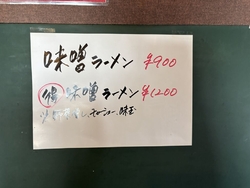 味噌ラーメン ¥900
得 味噌ラーメン ¥1200
チャーシュー、味玉